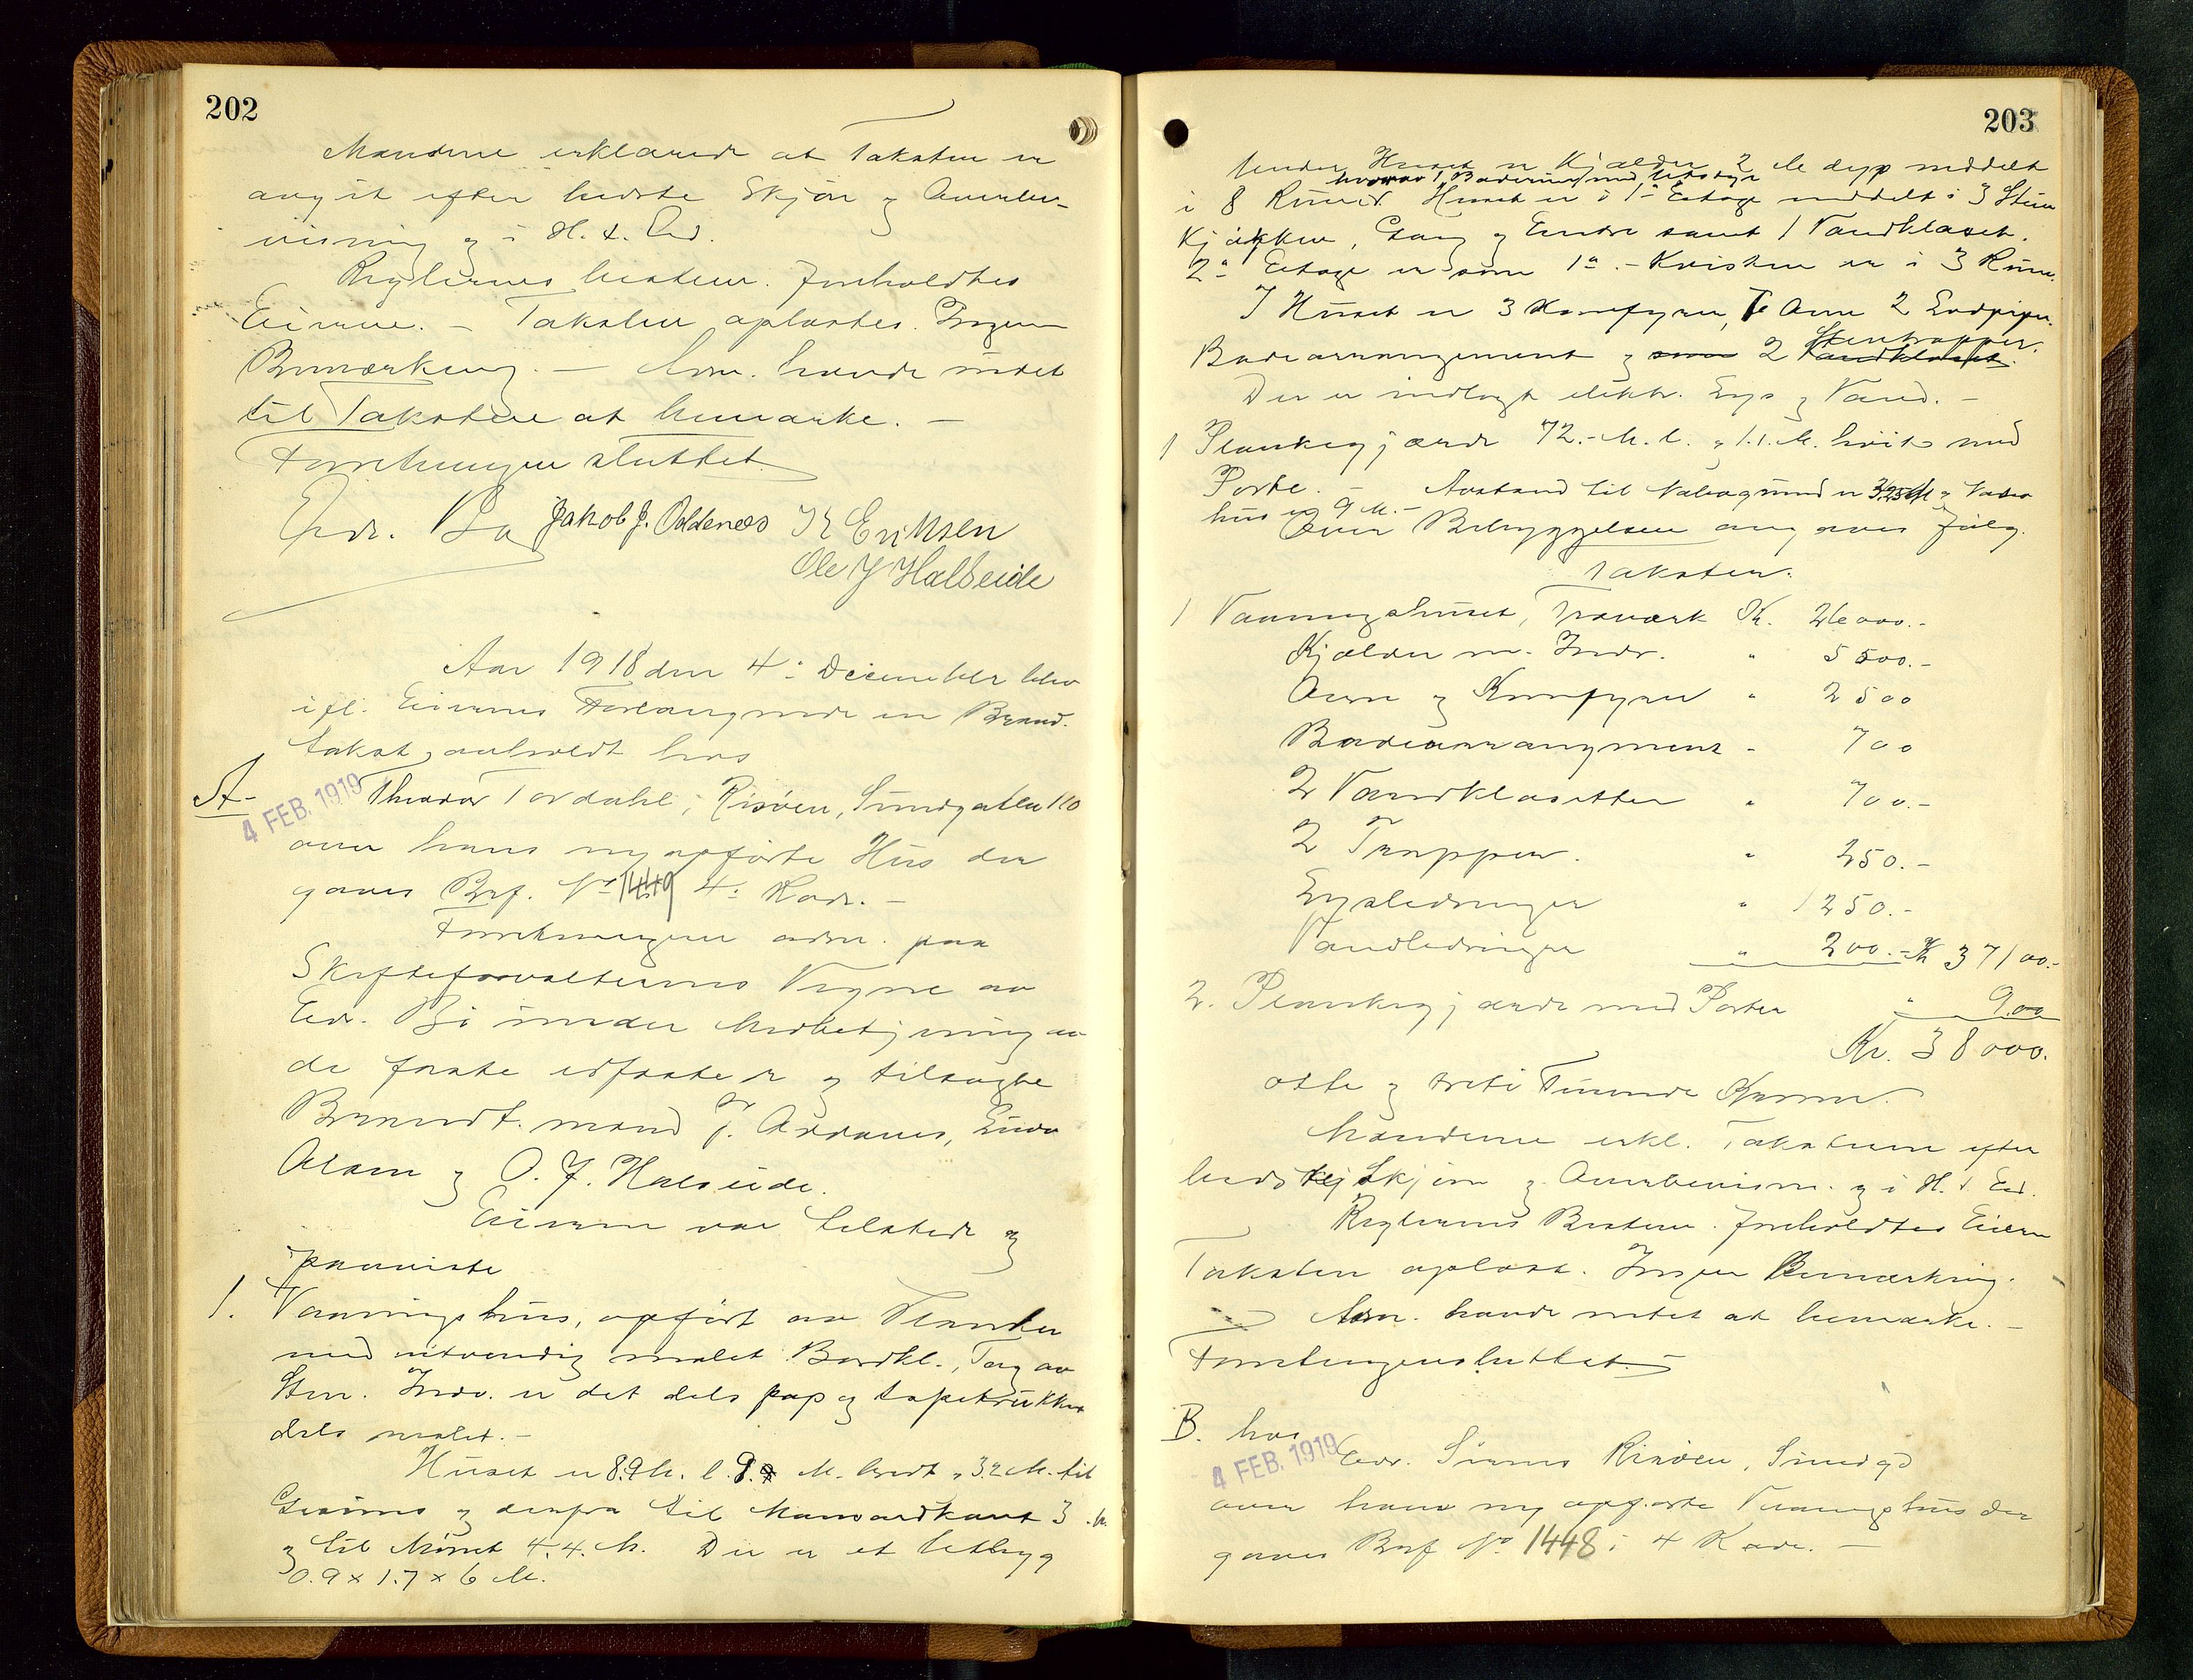 202
Mændene erklærede at Taksten er
avgit efter bedste Skjøn og Overbe-
visning og i H. t. Ed.
Reglernes bestem. foreholdtes
Eieren. – Taksten oplæstes. Ingen
Bemærkning. – Adm. havde intet
til Taksten at bemærke. –
Forretningen sluttet.
Edv. Bø Jakob J. Oddenes K Eriksen
Ole J Halseide
Aar 1918 den 4de December blev
ifl. Eierens Forlangende en Brand-
takst avholdt hos
A- Theodor Tordahl, Risøen, Sundgaten 110
4 FEB. 1919
over hans nyopførte Hus der
gaves Brf. No 1449 4de Rode. –
Forretningen adm. paa
Skifteforvalterens Vegne av
Edv. Bø under Medbetjening av
de faste edfæstede og tilsagte
Brandt. mænd J. Oddenes,
og O. J. Halseide.
Eieren var tilstede og
paaviste
1. Vaaningshus, opført av Planker
med utvendig malet Bordkl., Tag av
Sten. Indv. er det dels pap og tapettrukket
dels malet. –
Huset er 8.9 M. l. 9. M. bredt, 3.2 M. til
Gesims og derfra til Mansardkant 3 M.
og til Mønet 4.4. M. Der er et Utbyg
0.9 x 1.7 x 6 M.
203
Under Huset er Kjælder 2 M. dyp inddelt
hvorav 1 Baderum med Utstyr
i 8 Rum. Huset er i 1ste Etage inddelt i 3 Stuer
Kjøkken, Gang og Entre samt 1 Vandklaset.
2den Etage er som 1ste. – Kvisten er i 3 Rum.
I Huset er 3 Komfyrer, Ovne 2 Lodpiper.
Badearrangement og 2 Stentrapper.
Der er indlagt elektr. Lys og Vand. –
1 Plankegjærde 72. M. l. 1.1. M. høit med
Porte. – Avstand til Nabogrund er 3.25 M og Nabo
hus er 9 M. –
Over Bebyggelsen avgaves følg.
Taksten.
1 Vaaningshuset, Træværk Kr. 26000.-
Kjælder m. Indr. " 5500.-
Ovne og Komfyrer " 2500
Badearrangement - 700
2 Vandklasetter " 700.-
2 Trapper. " 250.-
Lysledninger " 1250.-
Vandledninger " 200.- Kr 37100.-
2. Plankegjærde med Porter " 900
Kr. 38000.
otte og treti Tusinde Kroner.
Mændene erkl. Taksten efter
bedste Skjøn og Overbevisn. og i H. t. Ed.
Reglernes Bestem. foreholdtes Eieren
Taksten oplæst. Ingen Bemærkning.
Adm. havde intet at bemærke. –
Forretningen sluttet.
B. hos
4 FEB. 1919
Edv. Risøen, Sundgd
over hans nyopførte Vaaningshus der
gaves Brf No 1448 i 4 Rode. –